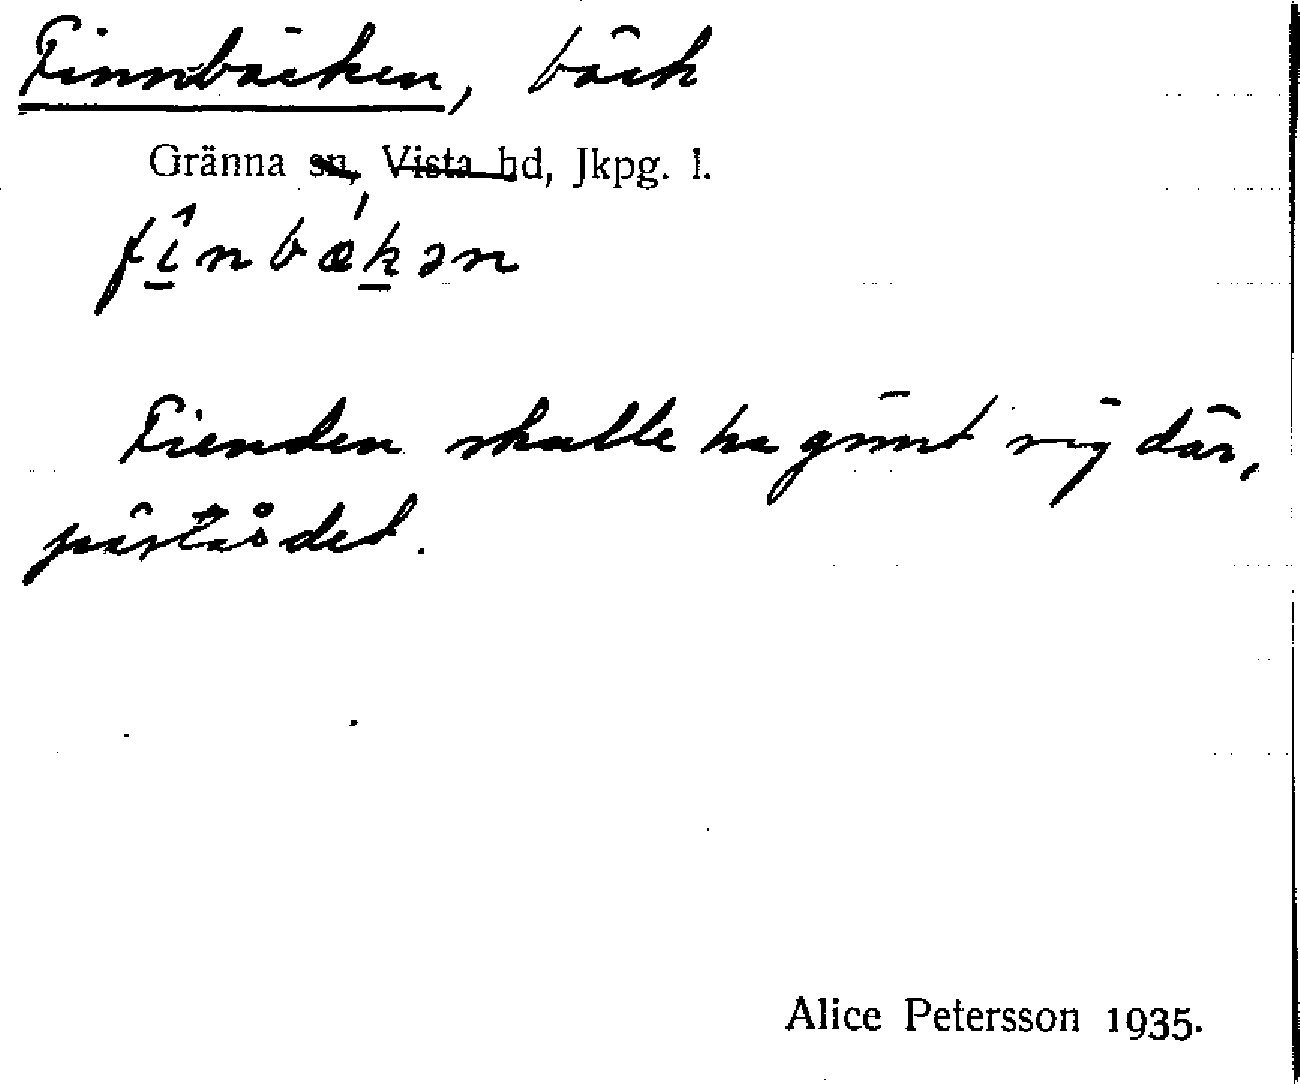 Finnbäcken, bäck
Gränna sn, Vista hd, Jkpg. l.
fînbækən
Fienden skulle ha gömt sig där,
påstås det.
Alice Petersson 1935.